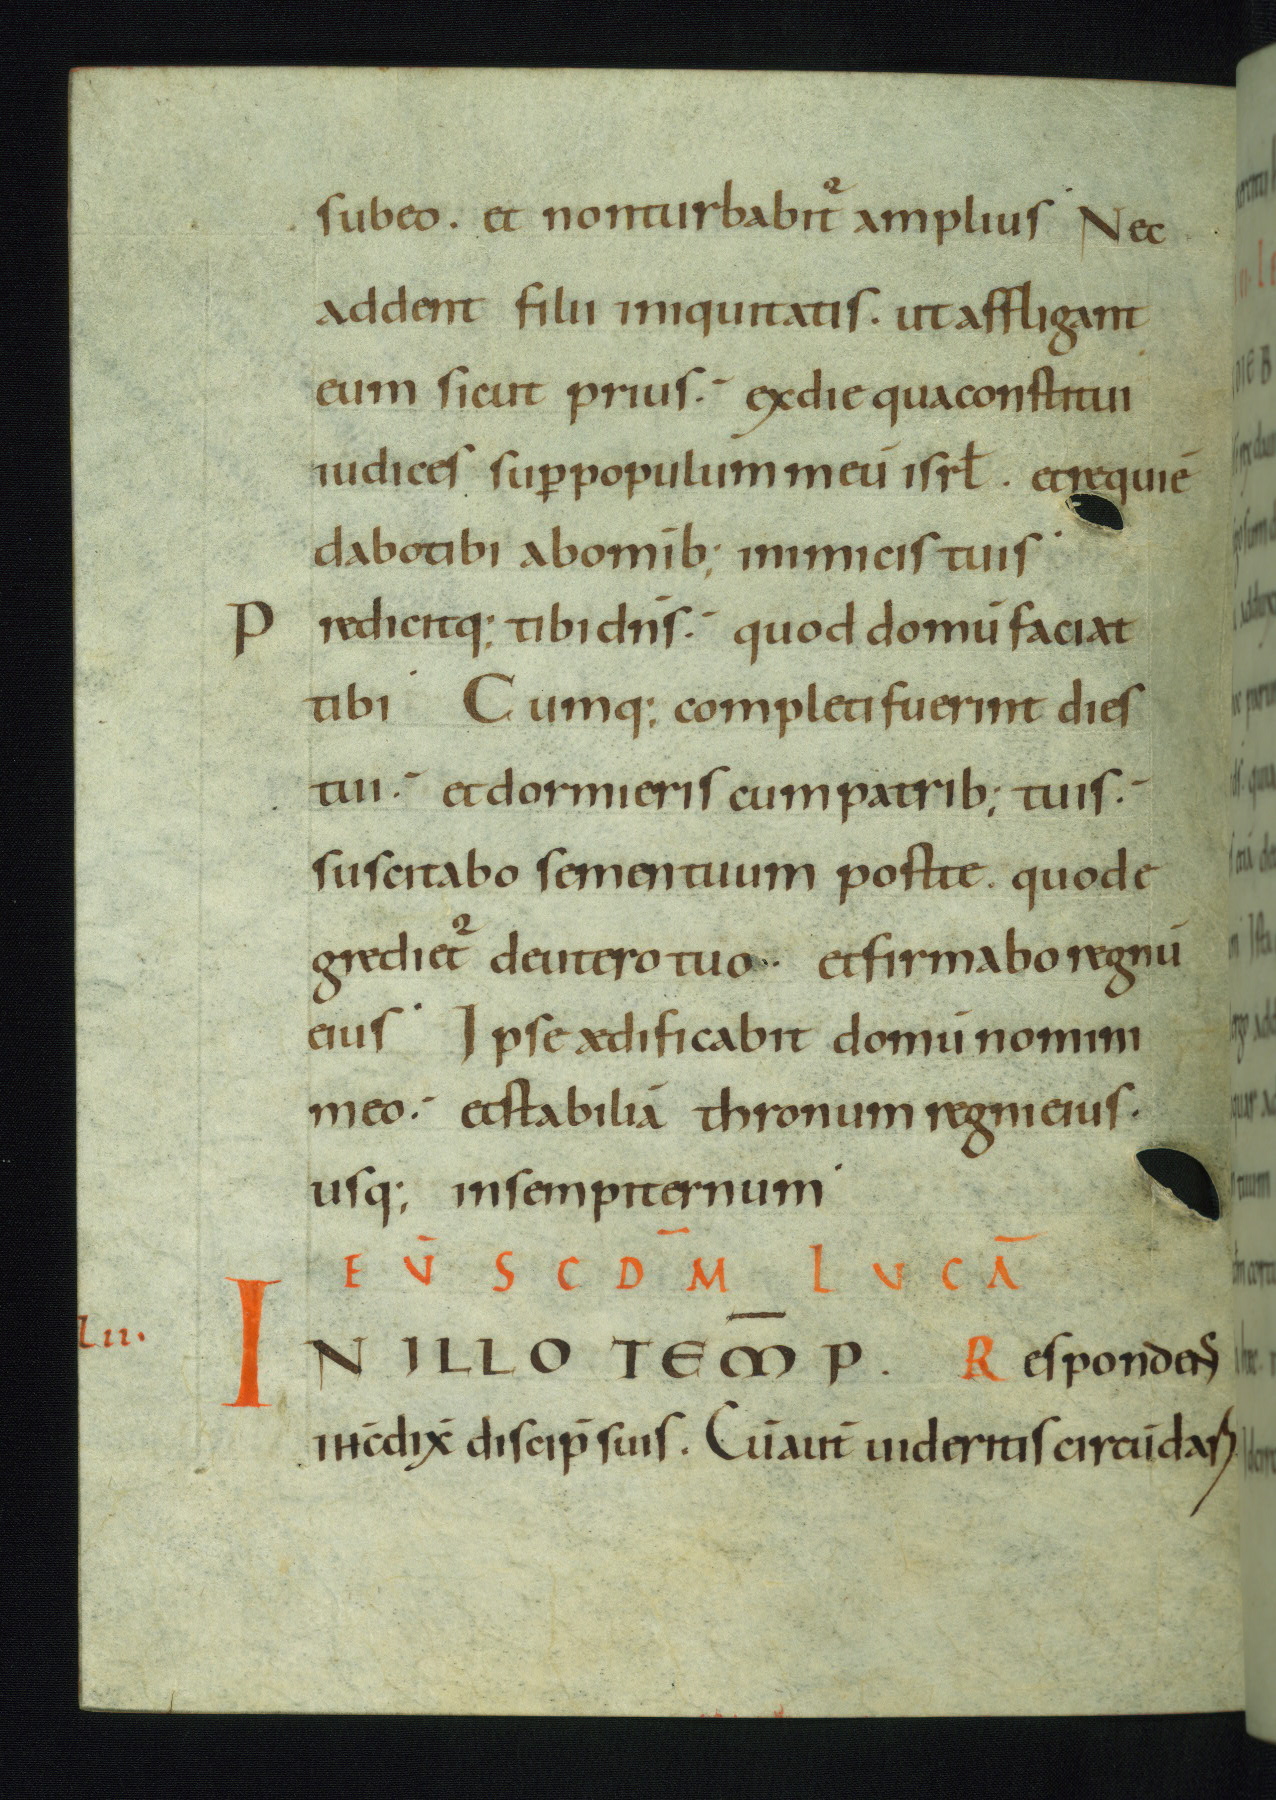 subeo. et nonturbabit᷑ amplius Nec
addent filii iniquitatis. ut affligant
eum sicut prius. ex die qua constitui
iudices sup̱ populum meū isrl̄. et requiē
dabo tibi ab omib; inimicis tuis
Predicitq; tibi dn̄s. quod domū faciat
tibi Cumq; completi fuerint dies
tui. et dormieris cum patrib; tuis.
suscitabo semen tuum post te. quod e
grediet᷑ de utero tuo. et firmabo regnū
eius Ipse ædificabit domū nomini
meo. et stabiliā thronum regni eius.
usq; in sempiternum
EV̄ SCDM̄ LVCĀ
Lii.
IN ILLO TEM̄P. Respondens
ih̄c dix̄ discip̄ suis. Cū aut̄ uideritis circūdaꝶ